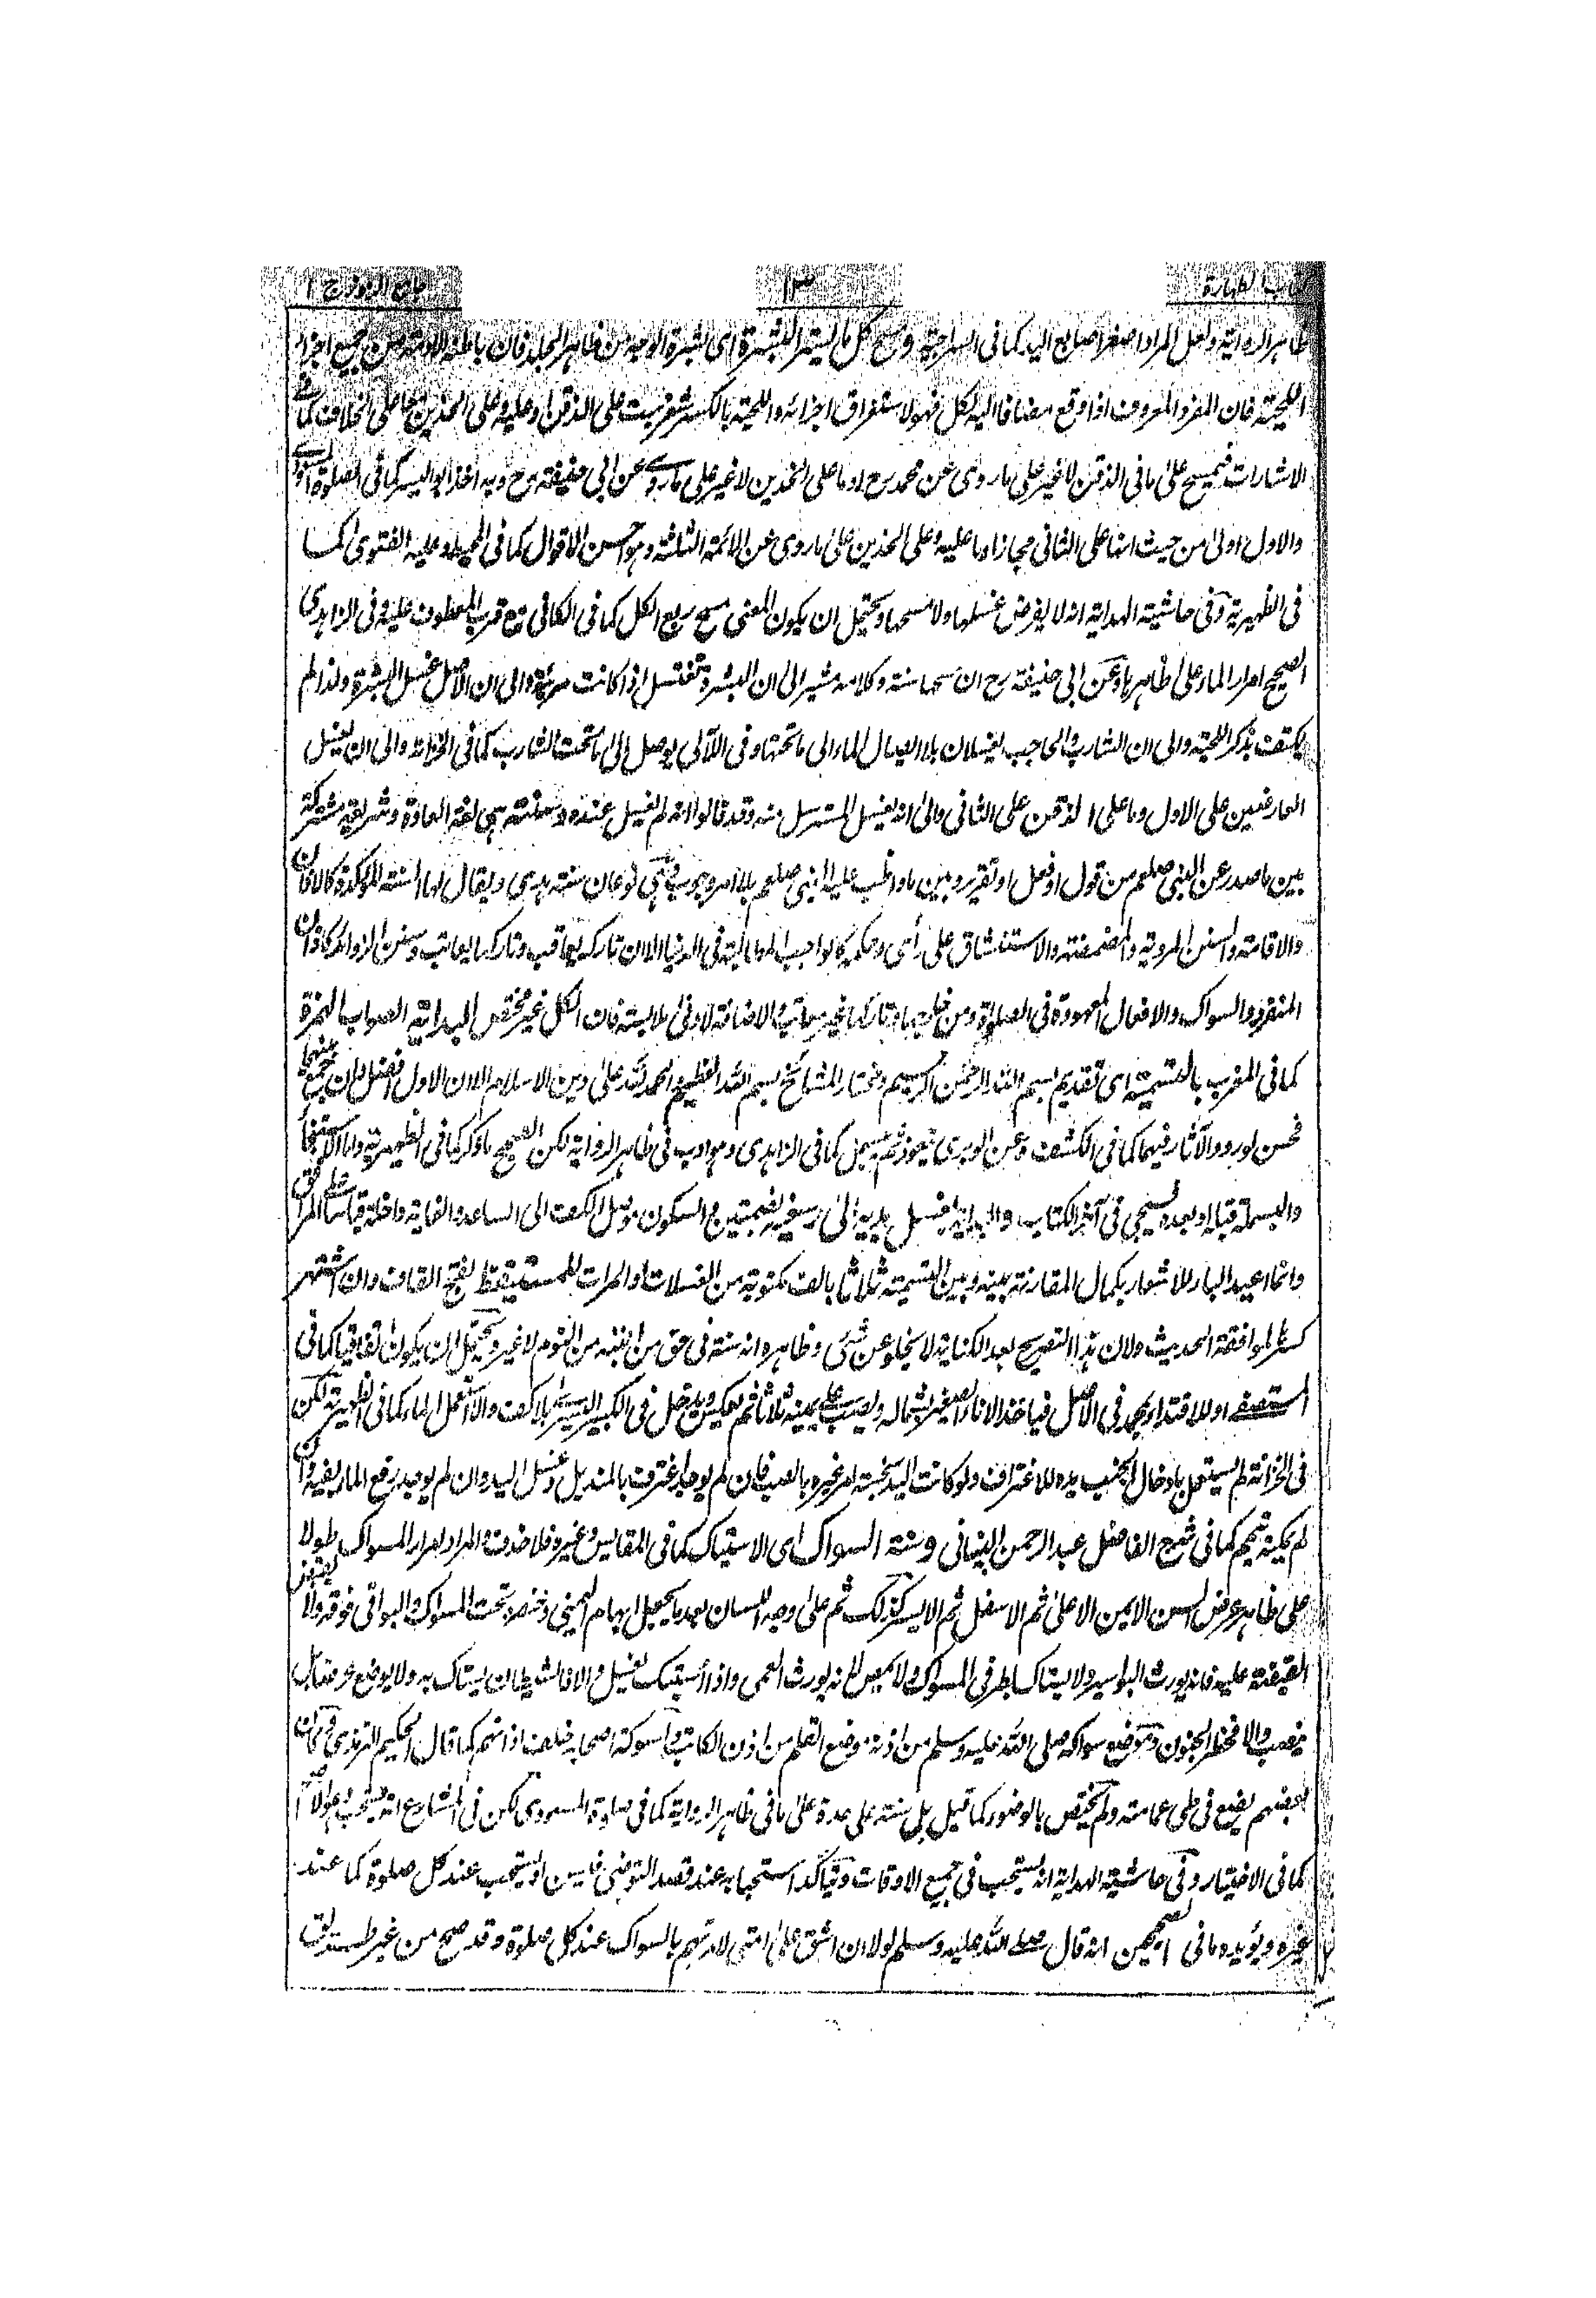 كتاب الطهارة
١٣
جامع الرموز ج ١
ظاهر الرواية ولعل المراد اصغر اصابع اليد كما فى السراجية ومسح كل ما يستر البشرة اى بشرة الوجه من ظاهر الجلد فان باطنه الادمة من جميع اجزاء
اللحية فان المفرد المعروف اذا وقع مضافا اليه لكل فهو لاستغراق اجزائه واللحية بالكسر شعر نبت على الذقن او عليه وعلى الخدين جميعا على الخلاف كما فى
الاشارات فيمسح على ما فى الذقن لا غير على ما روى عن محمد رح او ما على الخدين لا غير على ما روى عن ابى حنيفة رح وبه اخذ ابو اليسر كما فى الصلوة المسعودى
والاول اولى من حيث انها على الثانى مجاز او ما عليه وعلى الخدين على ما روى عن الائمة الثلثة وهو احسن الاقوال كما فى المحيط وعليه الفتوى كما
فى الظهيرية وفى حاشية الهداية انه لا يفرض غسلها ولا مسحها ويحتمل ان يكون المعنى مسح ربع الكل كما فى الكافى مع قرب المعطوف عليه وفى الزاهدى
الصحيح امرار الماء على ظاهرها وعن ابى حنيفة رح ان مسحها سنة وكلامه مشير الى ان البشرة تغتسل اذا كانت مرئية والى ان الاصل غسل البشرة ولذا لم
يكتف بذكر اللحية والى ان الشارب والحاجب يغسلان بلا ايصال الماء الى ما تحتها وفى اللآلى يوصل الى ما تحت الشارب كما فى الخزانة والى ان يغسل
العارضين على الاول وما على الذقن على الثانى والى انه يغسل المسترسل منه وقد قالوا انه لم يغسل عنده وسنته هى لغة العادة وشريعة مشتركة
بين ما صدر عن النبى صلعم من قول او فعل او تقرير وبين ما واظب عليه النبى صلعم بلا امر وجوب وهى نوعان سنة هدى ويقال لها السنة المؤكدة كالاذان
والاقامة والسنن المروية والمضمضة والاستنشاق على رأى وحكمه كالواجب المطالبة فى الدنيا الا ان تاركه يعاقب وتاركها يعاتب وسنن الزوائد كاذان
المنفرد والسواك والافعال المعهودة فى الصلوة ومن خارجها وتاركها غير معاتب والاضافة لادنى ملابسة فان الكل غير مختص البداية الصواب بالهمزة
كما فى المغرب بالتسمية اى تقديم بسم الله الرحمن الرحيم ومختار المشائخ بسم الله العظيم والحمد لله على دين الاسلام الا ان الاول افضل وان جمع بينهما
فحسن لورود الآثار فيهما كما فى الكشف وعن الوبرى يتعوذ ثم يبسمل كما فى الزاهدى وهو ادب فى ظاهر الرواية لكن الصحيح ما ذكر كما فى الظهيرية واما الاستنجاء
والبسملة قبله او بعده فسيجئ فى آخر الكتاب والبداية بغسل يديه الى رسغيه بضمتين او السكون موصل الكف الى الساعد والغاية داخلة قياسا على المرافق
وانما اعيد الباء للاشعار بكمال المقارنة بينه وبين التسمية ثلاثا بالف مكتوبة من الغسلات او المرات للمستيقظ بفتح القاف وان اشتهر
كسرها لموافقة الحديث ولان هذا التصريح بعد الكناية لا يخلو عن شئ وظاهره انه سنة فى حق من انتبه من النوم لا غير ويحتمل ان يكون اتفاقيا كما فى
المستصفى او للاقتداء بمحمد فى الاصل فياخذ الاناء الصغير بشماله ويصب على يمينه ثلاثا ثم يعكس ويدخل فى الكبير اليسرى بلا كف والا استعمل الماء كما فى الظهيرية لكن
فى الخزانة لم يستعمل بادخال الجنب يده للاغتراف ولو كانت اليد نجسة امر غيره بالصب فان لم يوجد اغترف بالمنديل وغسل اليد وان لم يوجد رفع الماء بفيه وان
لم يمكنه تيمم كما فى شرح الفاضل عبد الرحمن وسنته السواك اى الاستياك كما فى المقاييس وغيره فلا حذف والمراد امرار المسواك طولا
على ظاهر عرض السن الايمن الاعلى ثم الاسفل ثم الايسر كذلك ثم على وجه اللسان بعد ما يجعل ابهام اليمنى وخنصره تحت المسواك والبواقى فوقه ولا يقبض
القبضة عليه فانه يورث البواسير ولا يستاك بطرفى المسواك ولا يمص لانه يورث العمى واذا استيك يغسل والا فالشيطان يستاك به ولا يوضع عرضا بل
ينصب والا فخطر الجنون وموضع سواكه صلى الله عليه وسلم من اذنه موضع القلم من اذن الكاتب واسوكة اصحابه خلف آذانهم كما قال الحكيم الترمذى وكان
بعضهم يضع فى طى عمامته ولم يختص بالوضوء كما قيل بل سنة على حدة على ما فى ظاهر الرواية كما فى صلوة المسعودى لكن فى المشارع انه يستحب وهو الاصح
كما فى الاختيار وفى حاشية الهداية انه يستحب فى جميع الاوقات ويتأكد استحبابه عند قصد التوضى فليس او يستحب عند كل صلوة كما عند
غيره ويؤيده ما فى الصحيحين انه قال صلى الله عليه وسلم لولا ان اشق على امتى لامرتهم بالسواك عند كل صلوة وقد صح من غير طريق